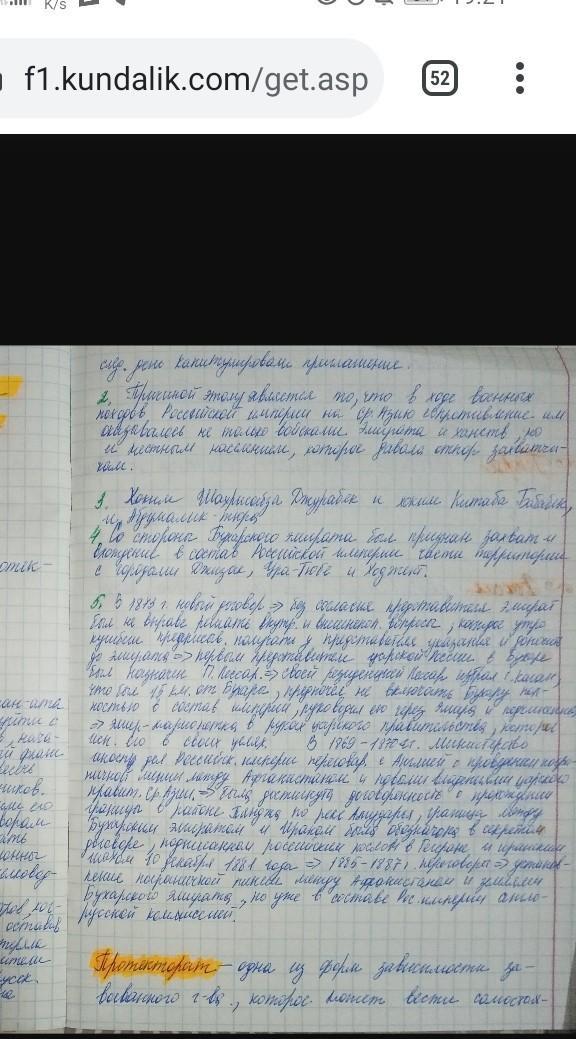 K/s
19:21
f1.kundalik.com/get.asp
52
след. день капитулировали приглашение.
2. Причиной этому является то, что в ходе военных
походов Российской империи на Ср. Азию сопротивление им
оказывалось не только войсками Эмирата и ханств, но
и местным населением, которое давало отпор захватчи-
кам.
3. Хоким Шахрисабза Джурабек и хоким Китаба Бабабек,
и Абдумалик-тура
4. Со стороны Бухарского эмирата был признан захват и
вхождение в состав Российской империи части территории
с городами Джизак, Ура-Тюбе и Ходжент.
5. В 1873 г. новой договор => без согласия представителя Эмират
был не вправе решать внутр. и внешнепол. вопросы, каждое утро
кушбеги
получать у представителя указания и
до эмирата => первым представителем царской России в Бухаре
был назначен => своей резиденцией избрал г. Каган,
что был 15 км. от Бухары, предпочёл не включать Бухару пол-
ностью в состав империи, руководил ею через Эмира и
=> эмир-марионетка в руках царского правительства, которое
исп. его в своих целях. В 1869-1870 гг. Министерство
иностр дел Российск. империи переговор. с Англией о проведении погра-
ничной линии между Афганистаном и новыми владениями царского
правит. Ср. Азии. => была достигнута договорённость о прохождении
границы в районе Пянджа по реке Амударья, граница между
Бухарским эмиратом и Ираном была обозначена в секретном
договоре, подписанном российским послом в Тегеране и иранским
шахом 10 декабря 1881 года => 1885-1887г. переговоры => установ-
ление пограничной линии между Афганистаном и землями
Бухарского эмирата, но уже в составе Рос. империи англо-
русской комиссией.
Протекторат - одна из форм зависимости за-
воёванного г-ва, которое может вести самостоя-